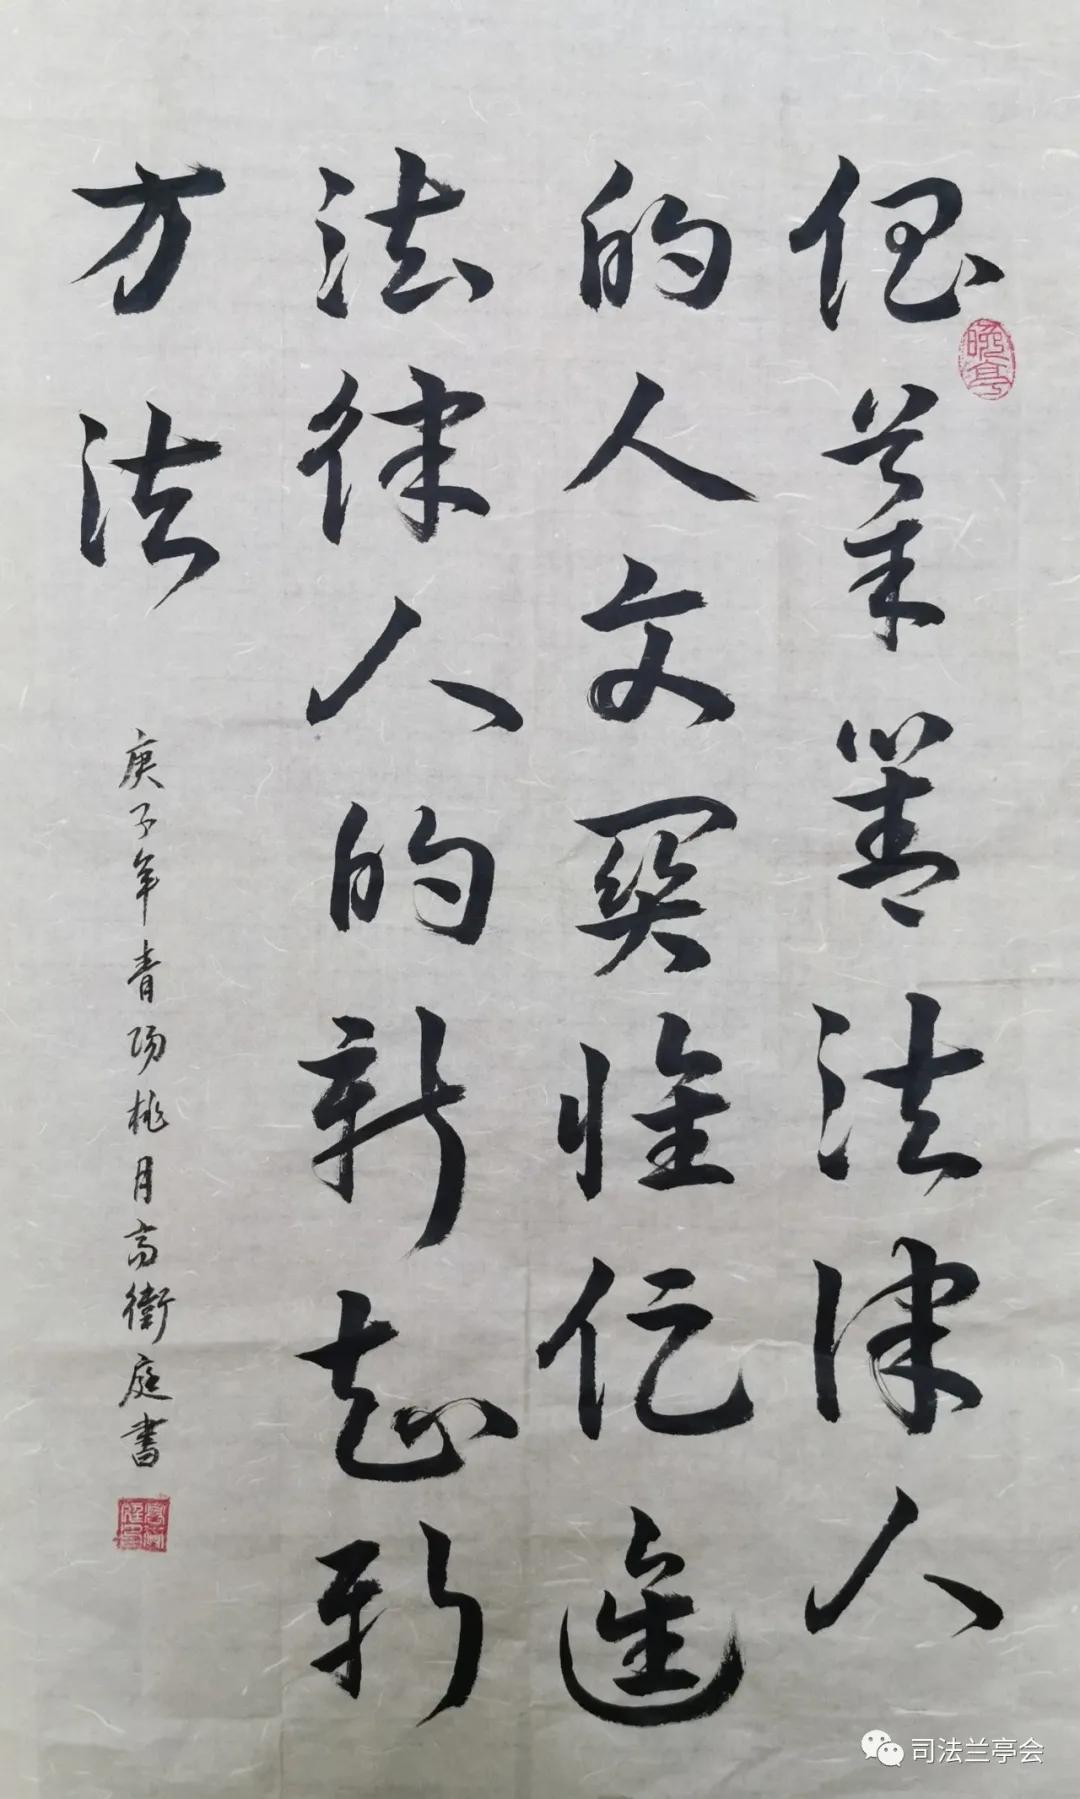 法律人
的人文關惟促進
法律人的新知新
方法
庚子年青陽桃月高衛庭書
晚亭
司法兰亭会